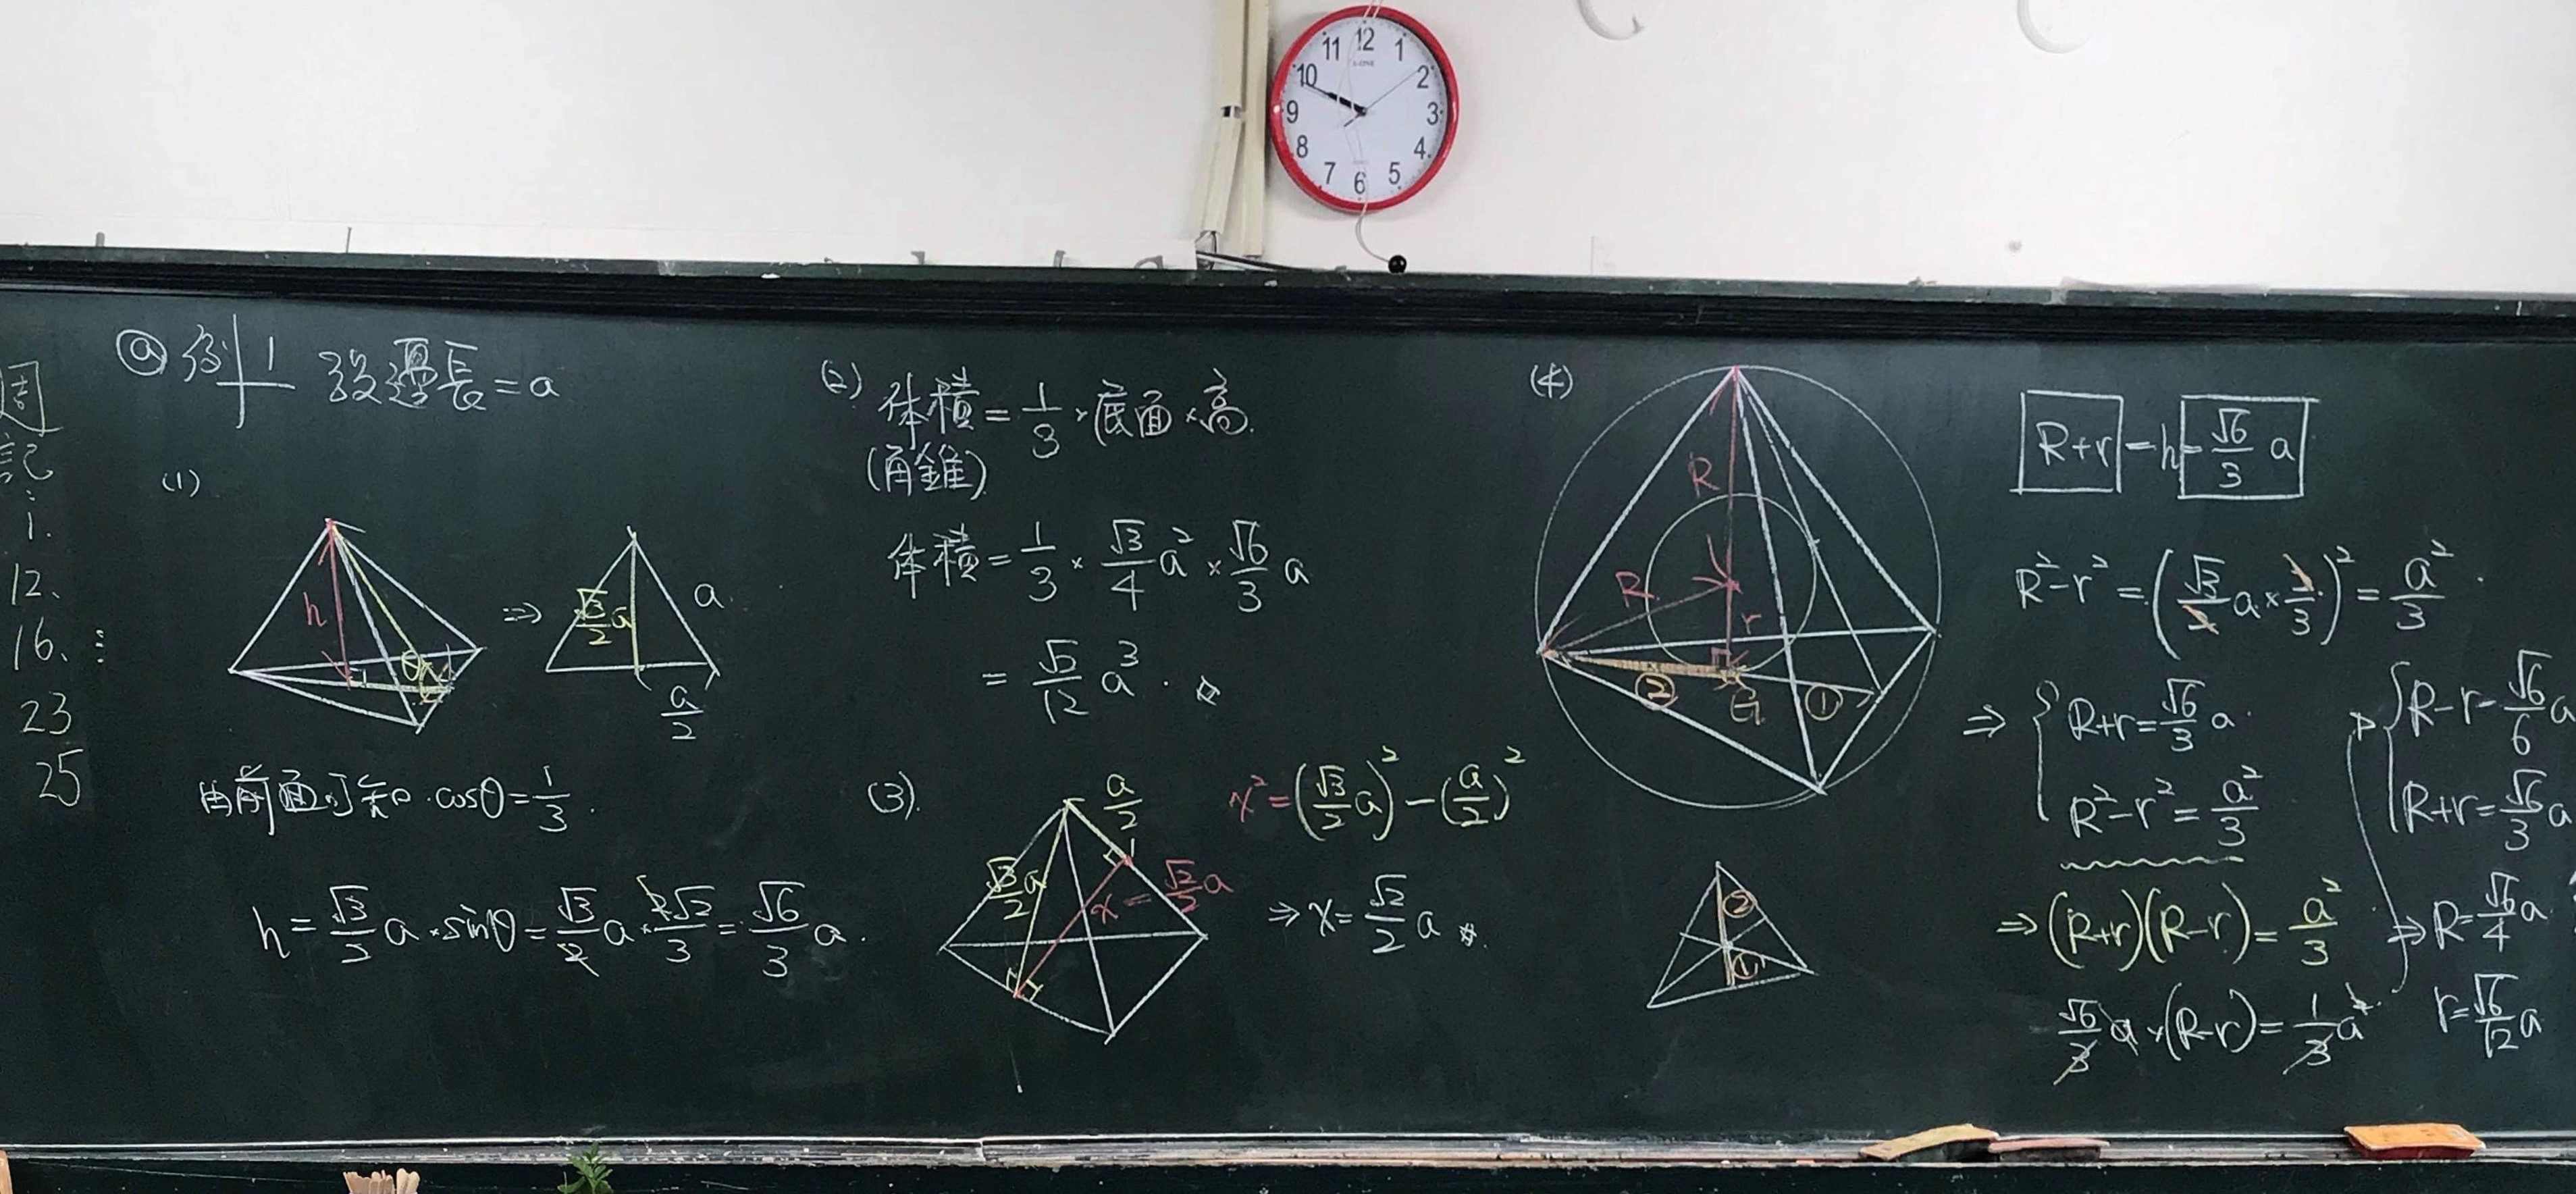 12
1
2
3
4
5
6
7
8
9
10
11
週
記
:
1.
12、
16、
23
25
ⓐ 例1 設邊長=a
(1)
h
θ
⇒
√3/2 a
a
a/2
由前面可知 cosθ=1/3.
h=√3/2 a×sinθ=√3/2 a×2√2/3=√6/3 a.
(2) 体積=1/3×底面×高.
(角錐)
体積=1/3×√3/4 a²×√6/3 a
=√2/12 a³.
(3).
a/2
√3/2 a
x=√2/2 a
x²=(√3/2 a)²-(a/2)²
⇒x=√2/2 a
(4)
R
R
r
② G ①
②
①
R+r=h=√6/3 a
R²-r²=(√3/2 a×2/3)²=a²/3.
⇒{R+r=√6/3 a.
R²-r²=a²/3
⇒(R+r)(R-r)=a²/3
√6/3 a×(R-r)=1/3 a².
⇒{R-r=√6/6 a
R+r=√6/3 a
⇒R=√6/4 a
r=√6/12 a